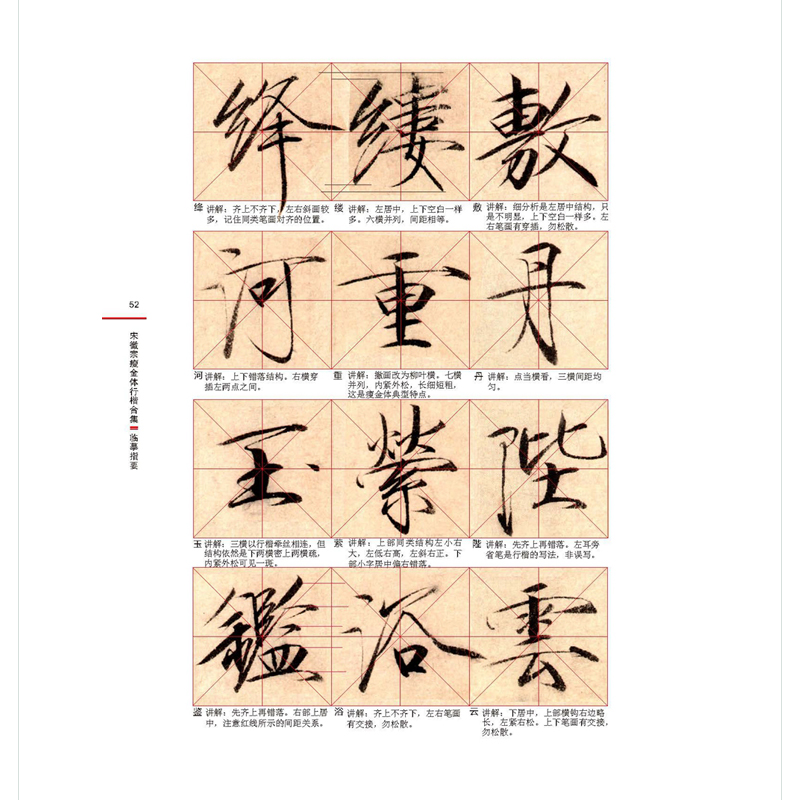 絳 縷 敷
绛 讲解:齐上不齐下,左右斜画较
多,记住同类笔画对齐的位置。
缕 讲解:左居中,上下空白一样
多。六横并列,间距相等。
敷 讲解:细分析是左居中结构,只
是不明显,上下空白一样多。左
右笔画有穿插,勿松散。
河 重 丹
河 讲解:上下错落结构。右横穿
插左两点之间。
重 讲解:撇画改为柳叶横。七横
并列,内紧外松,长细短粗,
这是瘦金体典型特点。
丹 讲解:点当横看,三横间距均
匀。
52
宋徽宗瘦金体行楷合集 临摹指要
玉 縈 陛
玉 讲解:三横以行楷牵丝相连,但
结构依然是下两横密上两横疏,
内紧外松可见一斑。
讲解:上部同类结构左小右
大,左低右高,左斜右正。下
部小字居中偏右错落。
陛 讲解:先齐上再错落。左耳旁
省笔是行楷的写法,非误写。
鑑 浴 雲
鉴 讲解:先齐上再错落。右部上居
中,注意红线所示的间距关系。
浴 讲解:齐上不齐下,左右笔画
有交接,勿松散。
云 讲解:下居中,上部横钩右边略
长,左紧右松。上下笔画有交接,
勿松散。